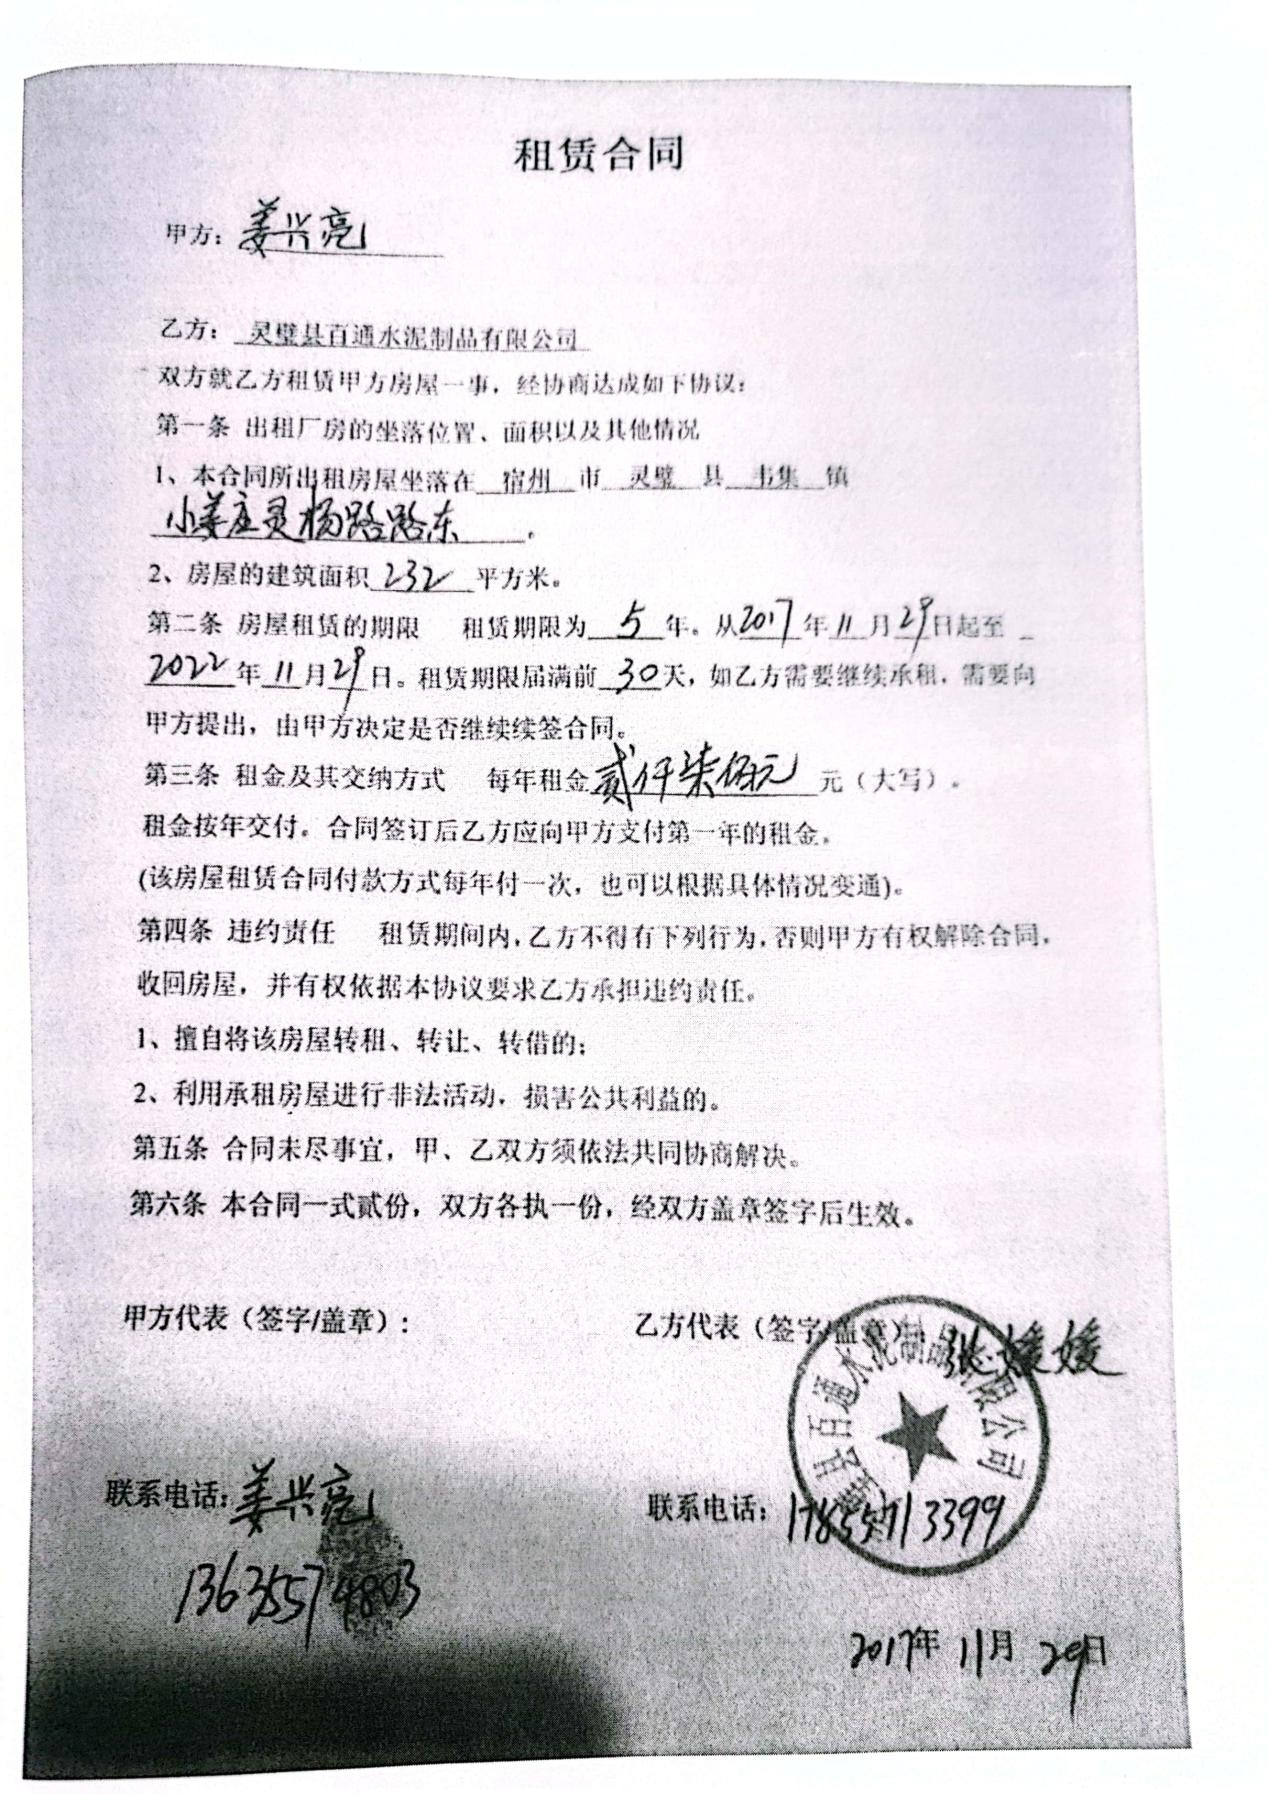 租赁合同
甲方：姜兴亮
乙方：灵璧县百通水泥制品有限公司
双方就乙方租赁甲方房屋一事，经协商达成如下协议：
第一条 出租厂房的坐落位置、面积以及其他情况
1、本合同所出租房屋坐落在 宿州 市 灵璧 县 韦集 镇
小姜庄灵杨路路东。
2、房屋的建筑面积 232 平方米。
第二条 房屋租赁的期限 租赁期限为 5 年。从2017年11月29日起至
2022年11月29日。租赁期限届满前 30天，如乙方需要继续承租，需要向
甲方提出，由甲方决定是否继续续签合同。
第三条 租金及其交纳方式 每年租金贰仟柒佰元 元（大写）。
租金按年交付。合同签订后乙方应向甲方支付第一年的租金。
(该房屋租赁合同付款方式每年付一次，也可以根据具体情况变通)。
第四条 违约责任 租赁期间内，乙方不得有下列行为，否则甲方有权解除合同，
收回房屋，并有权依据本协议要求乙方承担违约责任。
1、擅自将该房屋转租、转让、转借的；
2、利用承租房屋进行非法活动，损害公共利益的。
第五条 合同未尽事宜，甲、乙双方须依法共同协商解决。
第六条 本合同一式贰份，双方各执一份，经双方盖章签字后生效。
甲方代表（签字/盖章）：
乙方代表（签字/盖章）：张媛媛
灵璧县百通水泥制品有限公司
联系电话：姜兴亮
13635574803
联系电话：17855713399
2017年11月29日